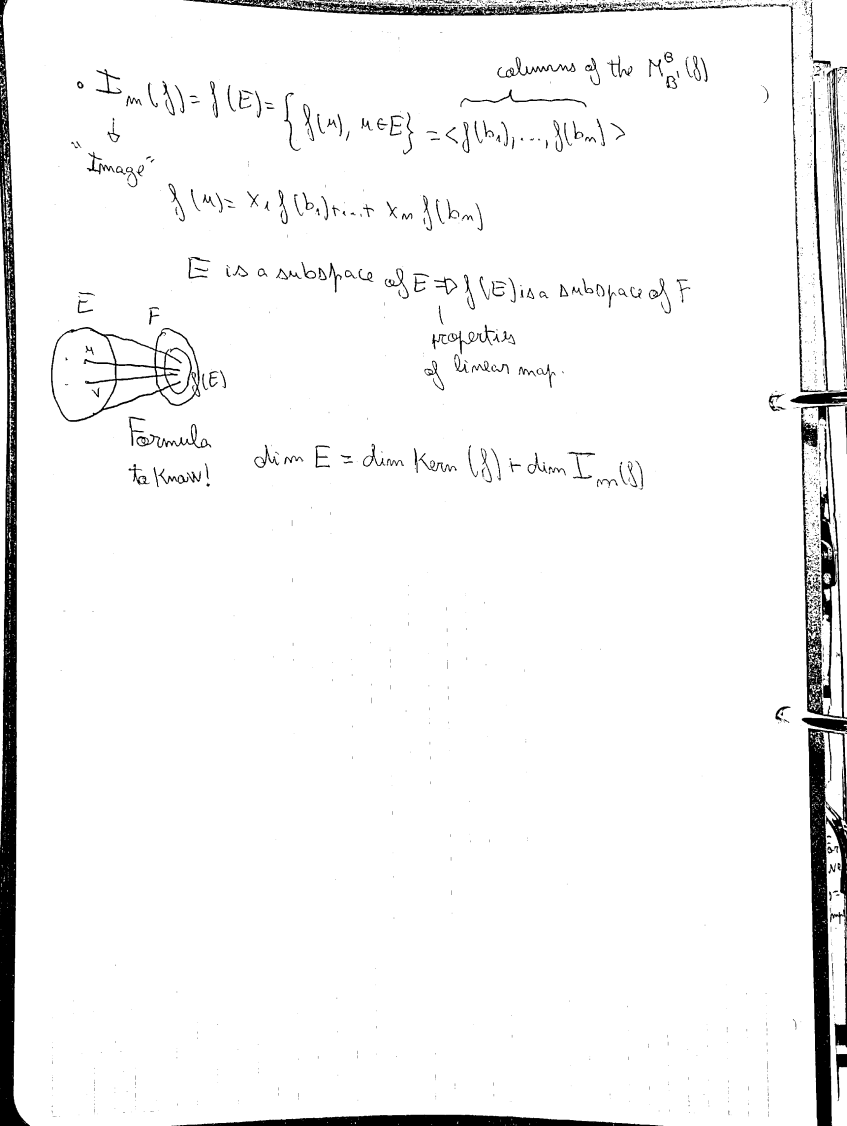 columns of the M^B_B'(f)
• Im(f) = f(E) = {f(u), u∈E} = <f(b₁), ..., f(bₙ)>
"Image"
f(u) = x₁ f(b₁) + ... + xₙ f(bₙ)
E is a subspace of E ⇒ f(E) is a subspace of F
properties
of linear map.
E F
u
v
f(E)
Formula
to know!
dim E = dim Kern(f) + dim Im(f)